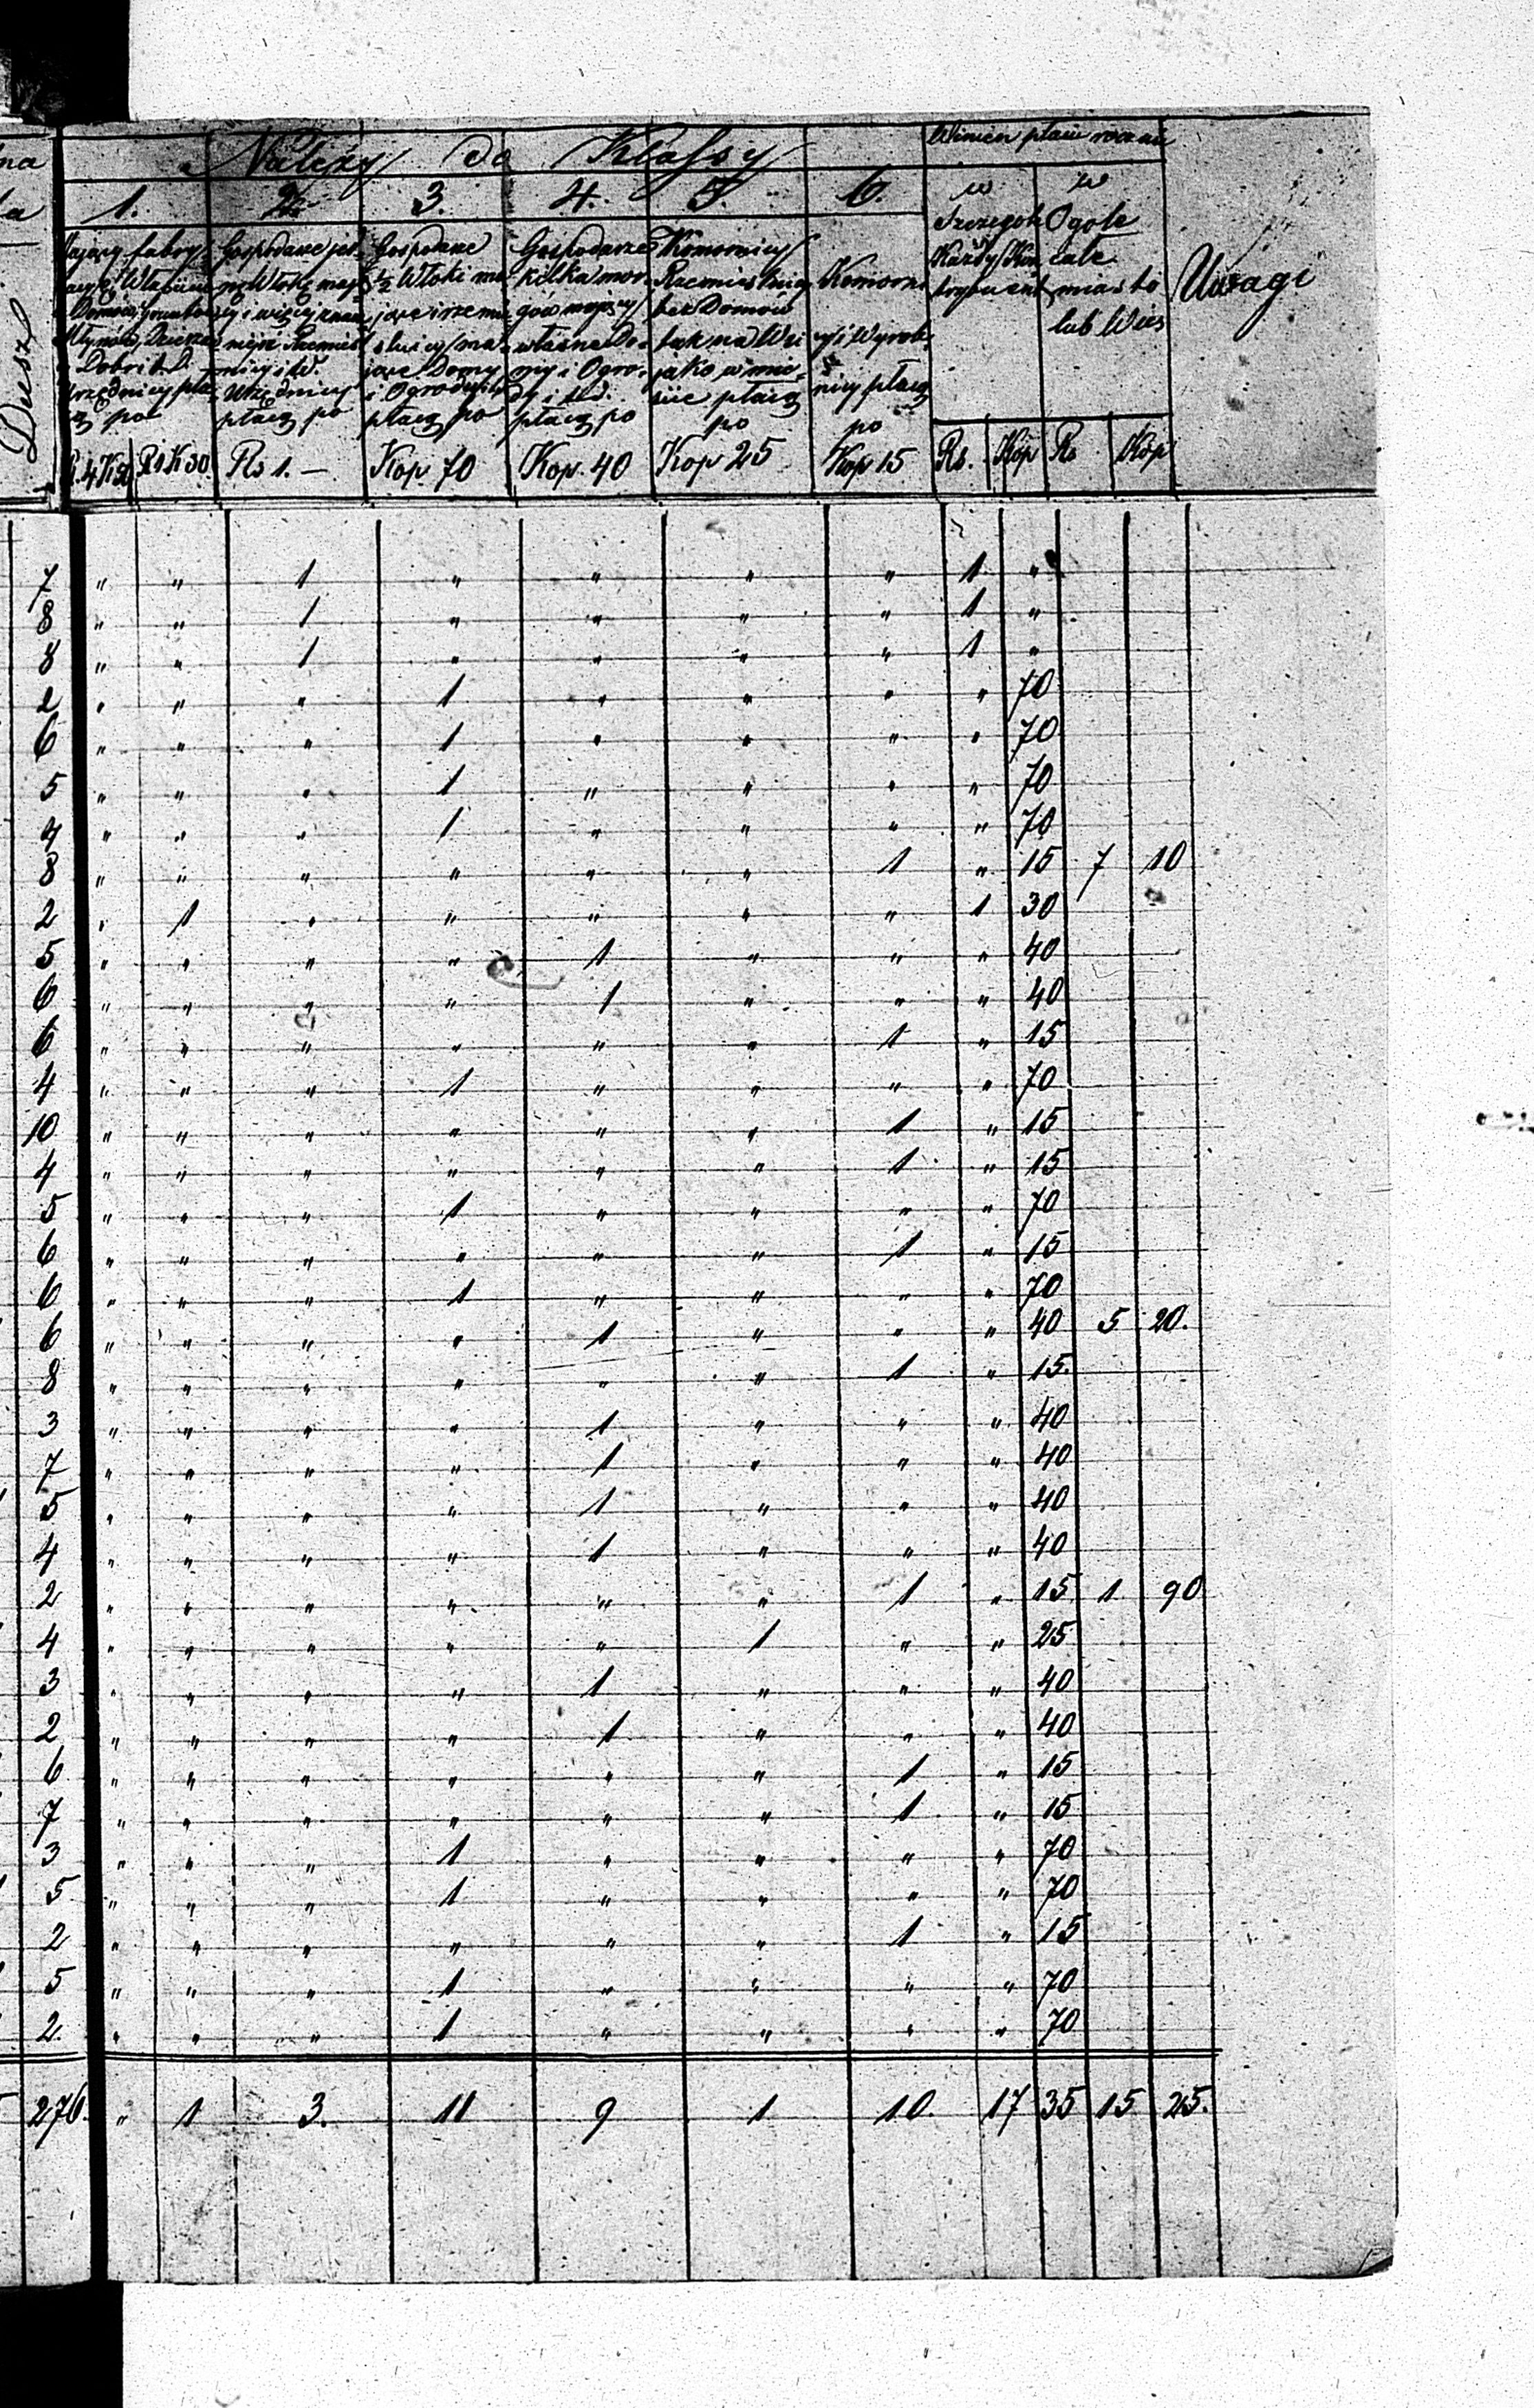 Należy do Klassy
Winien płacić rocznie
1. 2. 3. 4. 5. 6.
w Szczególe Każdy
w Ogóle całe miasto lub Wieś
Uwagi
Dusz
Mający fabry-
Domów, Gruntów
Młynów, Dzierża-
Dobr i t. d.
Urzędnicy płacą po
R. 4 K 50
Rs 1 K 30
Gospodarze jed-
nę Włokę mają-
cy i więcej
Urzędnicy
płacą po
Rs 1. —
Gospodarze
½ Włoki ma-
jące i rzemie-
slnicy ma-
jące Domy
i Ogrody
płacą po
Kop. 70
Gospodarze
kilka mor-
gów mający
własne Do-
my i Ogro-
dy i t. d.
płacą po
Kop. 40
Komornicy
Rzemieslnicy
bez Domów
tak na Wsi
jako w mie-
ście płacą
po
Kop 25
Komorni-
cy i Wyrob-
nicy płacą
po
Kop 15
Rs. Kop Rs Kop
7 " " 1 " " " " 1 "
8 " " 1 " " " " 1 "
8 " " 1 " " " " 1 "
2 " " " 1 " " " " 70
6 " " " 1 " " " " 70
5 " " " 1 " " " " 70
4 " " " 1 " " " " 70
8 " " " " " " 1 " 15 7 10
2 " 1 " " " " " 1 30
5 " " " " 1 " " " 40
6 " " " " 1 " " " 40
6 " " " " " " 1 " 15
4 " " " 1 " " " " 70
10 " " " " " " 1 " 15
4 " " " " " " 1 " 15
5 " " " 1 " " " " 70
6 " " " " " " 1 " 15
6 " " " 1 " " " " 70
6 " " " " 1 " " " 40 5 20.
8 " " " " " " 1 " 15.
3 " " " " 1 " " " 40
7 " " " " 1 " " " 40
5 " " " " 1 " " " 40
4 " " " " 1 " " " 40
2 " " " " " " 1 " 15 1. 90
4 " " " " " 1 " " 25
3 " " " " 1 " " " 40
2 " " " " 1 " " " 40
6 " " " " " " 1 " 15
7 " " " " " " 1 " 15
3 " " " 1 " " " " 70
5 " " " 1 " " " " 70
2 " " " " " " 1 " 15
5 " " " 1 " " " " 70
2. " " " 1 " " " " 70
276. " 1 3. 11 9 1 10. 17 35 15 25.